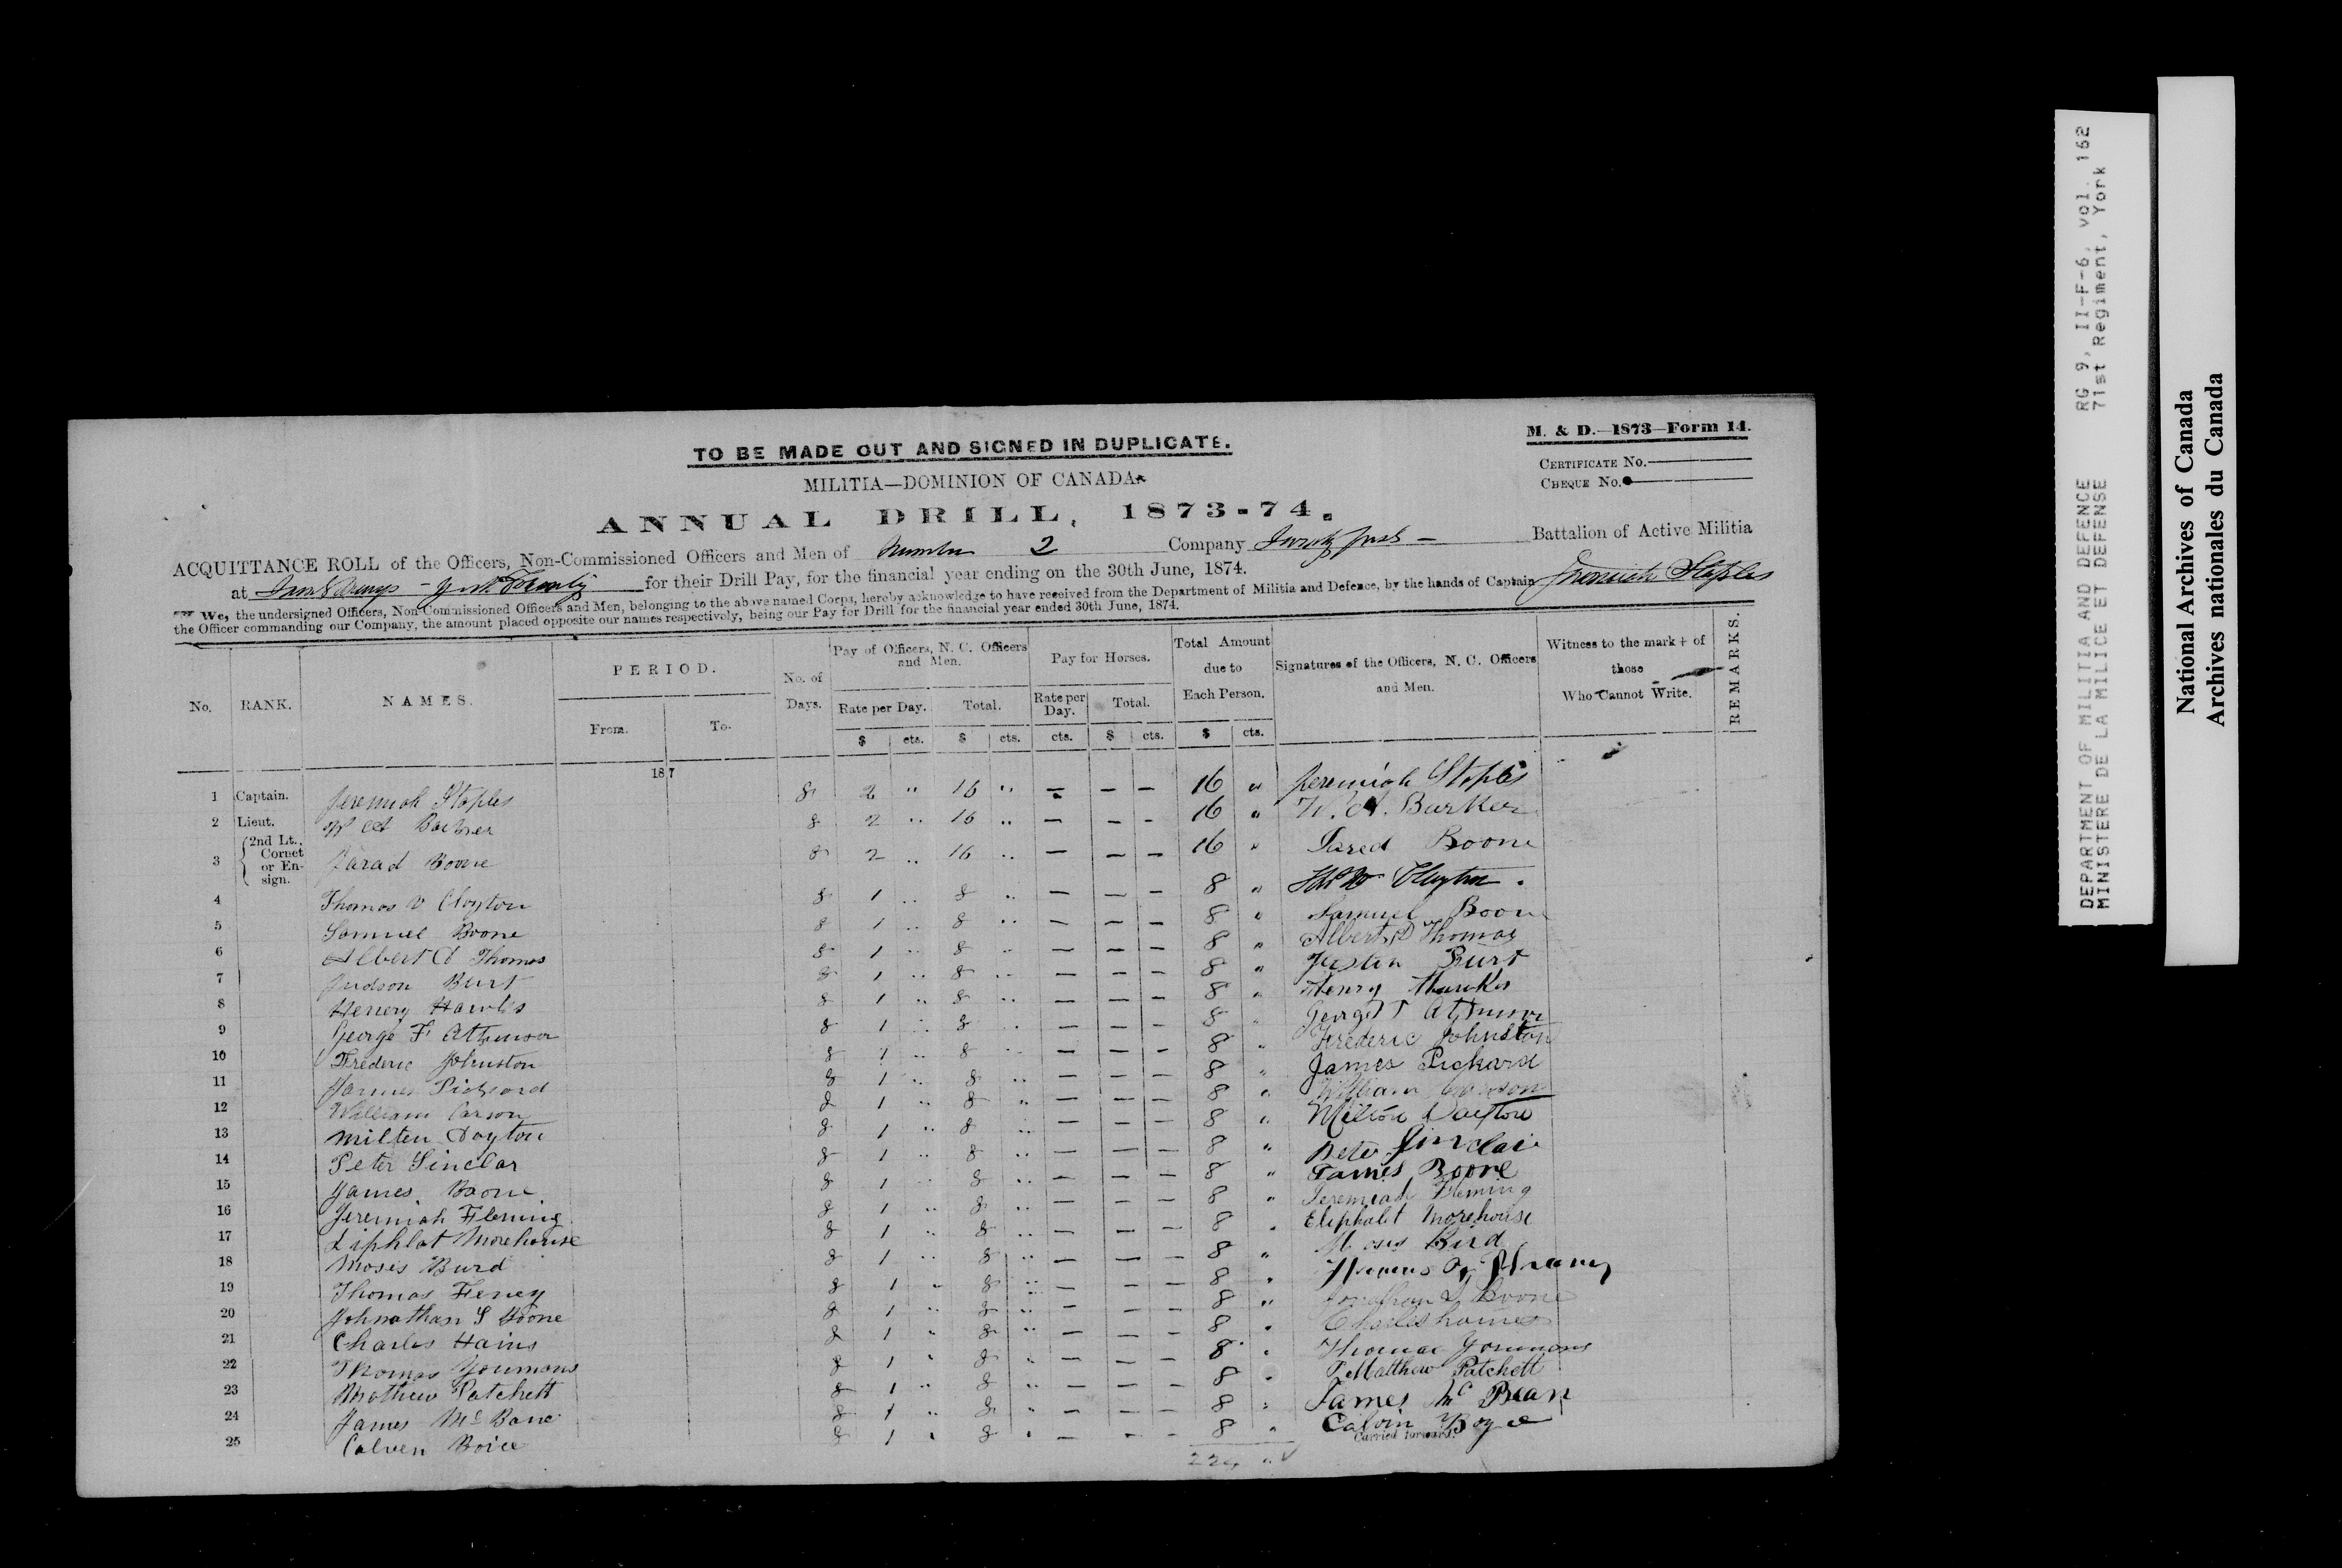 TO BE MADE OUT AND SIGNED IN DUPLICATE.
M. & D.—1873—Form 14.
MILITIA—DOMINION OF CANADA
CERTIFICATE No.
CHEQUE No.
ANNUAL DRILL, 1873-74.
ACQUITTANCE ROLL of the Officers, Non-Commissioned Officers and Men of Number 2 Company Battalion of Active Militia
at for their Drill Pay, for the financial year ending on the 30th June, 1874.
We, the undersigned Officers, Non-Commissioned Officers and Men, belonging to the above named Corps, hereby acknowledge to have received from the Department of Militia and Defence, by the hands of Captain Jeremiah Staples
the Officer commanding our Company, the amount placed opposite our names respectively, being our Pay for Drill for the financial year ended 30th June, 1874.
No. RANK. NAMES. PERIOD. From. To. No. of Days. Pay of Officers, N. C. Officers and Men. Rate per Day. $ cts. Total. $ cts. Pay for Horses. Rate per Day. cts. Total. $ cts. Total Amount due to Each Person. $ cts. Signatures of the Officers, N. C. Officers and Men. Witness to the mark + of those Who Cannot Write. REMARKS.
187
1 Captain. Jeremiah Staples 8 2 " 16 " — — — 16 " Jeremiah Staples
2 Lieut. W A Barker 8 2 " 16 " — — — 16 " W. A. Barker
3 2nd Lt., Cornet or Ensign. Jarad Boone 8 2 " 16 " — — — 16 " Jared Boone
4 Thomas V Clayton 8 1 " 8 " — — — 8 " Clayton
5 Samuel Boone 8 1 " 8 " — — — 8 " Samuel Boone
6 Albert D Thomas 8 1 " 8 " — — — 8 " Albert D Thomas
7 Judson Burt 8 1 " 8 " — — — 8 " Burt
8 Henery Hawks 8 1 " 8 " — — — 8 " Henry Hawks
9 George F 8 1 " 8 " — — — 8 " George
10 Frederic Johnston 8 1 " 8 " — — — 8 " Frederic Johnston
11 James Pickard 8 1 " 8 " — — — 8 " James Pickard
12 William Carson 8 1 " 8 " — — — 8 " William Carson
13 Milten Dayton 8 1 " 8 " — — — 8 " Milton Dayton
14 Peter Sinclar 8 1 " 8 " — — — 8 " Peter Sinclair
15 James Boone 8 1 " 8 " — — — 8 " James Boone
16 Jeremiah Fleming 8 1 " 8 " — — — 8 " Jeremiah Fleming
17 Liphlat Morehouse 8 1 " 8 " — — — 8 " Eliphalet Morehouse
18 Moses Burd 8 1 " 8 " — — — 8 " Moses Bird
19 Thomas Feney 8 1 " 8 " — — — 8 " Thomas
20 Johnathan S Boone 8 1 " 8 " — — — 8 " Jonathan S Boone
21 Charles Hains 8 1 " 8 " — — — 8 " Charles
22 Thomas Youmans 8 1 " 8 " — — — 8 " Thomas Youmans
23 Mathew Patchett 8 1 " 8 " — — — 8 " Matthew Patchett
24 James McBane 8 1 " 8 " — — — 8 " James McBean
25 Calven Boice 8 1 " 8 " — — — 8 " Calvin Boyce
Carried forward.
224 "
DEPARTMENT OF MILITIA AND DEFENCE RG 9, II-F-6, vol. 162
MINISTERE DE LA MILICE ET DEFENSE 71st Regiment, York
National Archives of Canada
Archives nationales du Canada